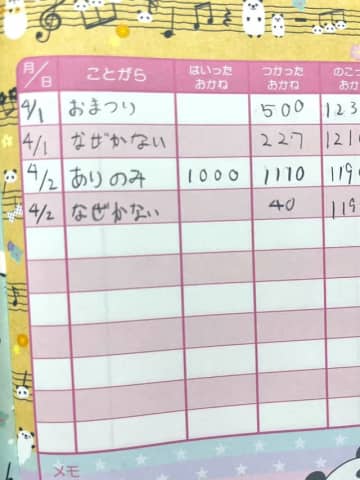 月/日 ことがら はいった おかね つかった おかね のこ おか
4/1 おまつり 500 123
4/1 なぜかない 227 121
4/2 ありのみ 1000 1170 119
4/2 なぜかない 40 119
メモ